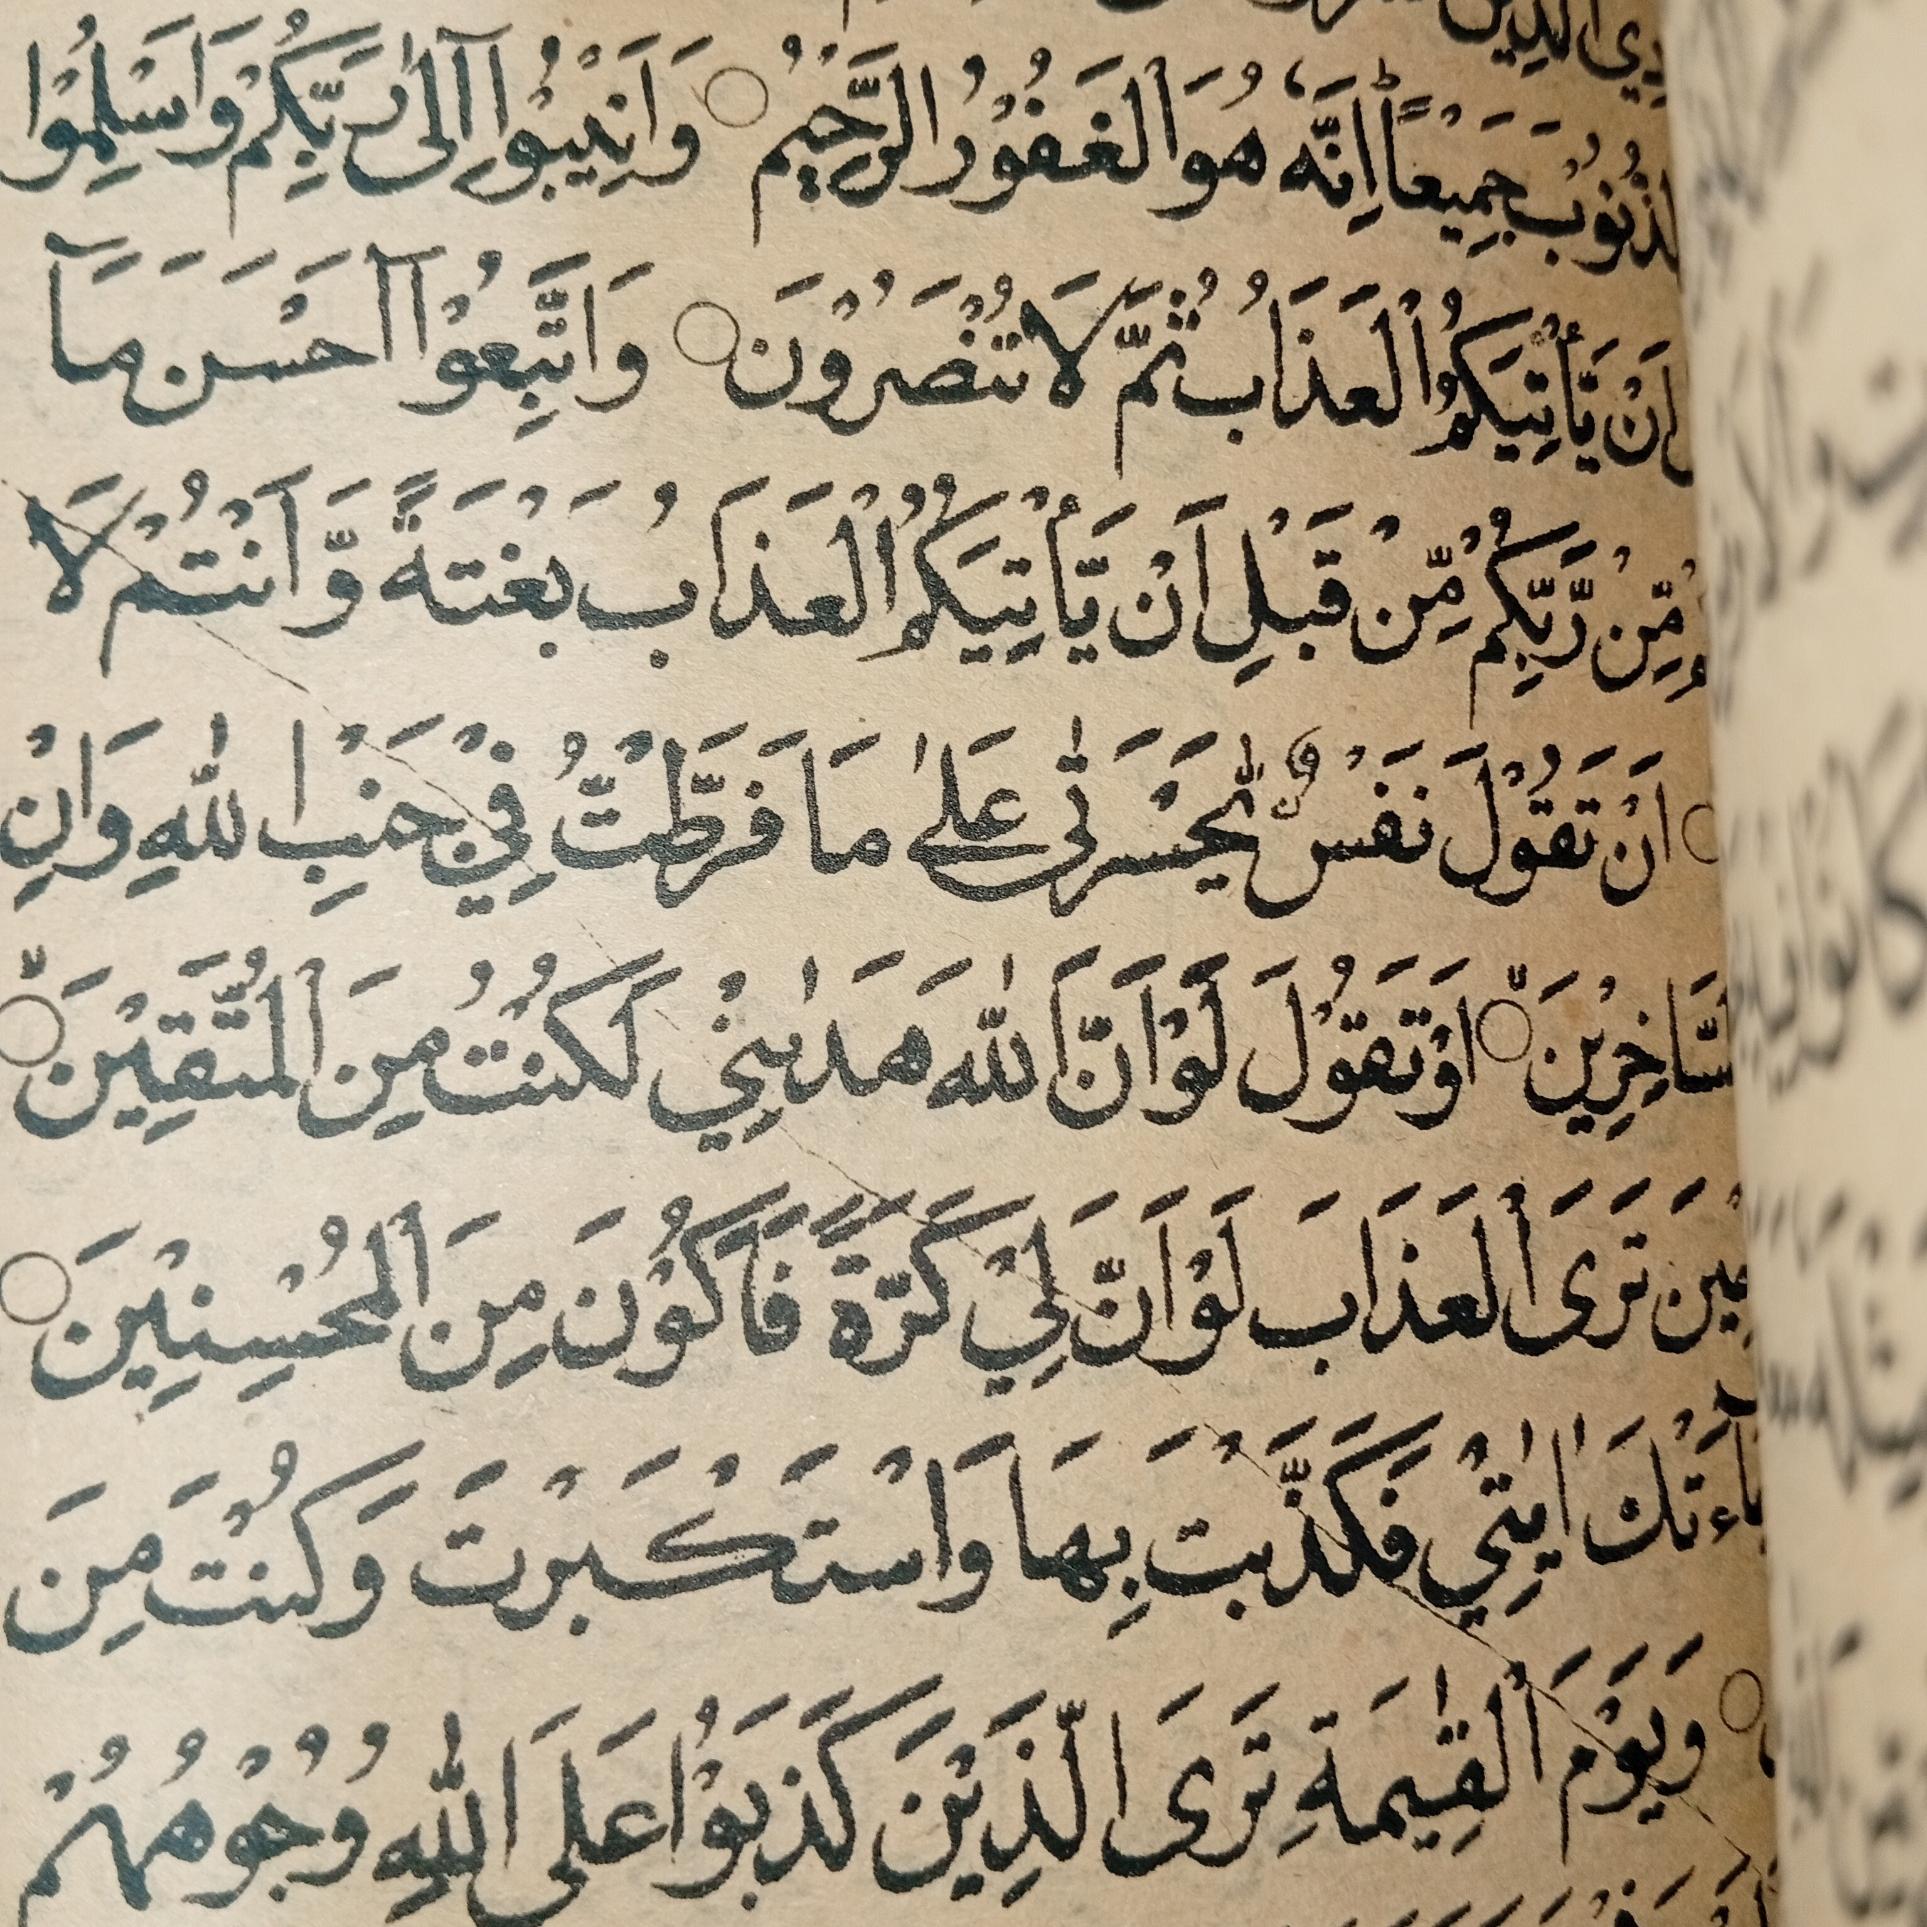 الذُّنُوْبَ جَمِيْعًا ؕ اِنَّهٗ هُوَ الْغَفُوْرُ الرَّحِيْمُ ○ وَاَنِيْبُوْۤا اِلٰى رَبِّكُمْ وَاَسْلِمُوْا
اَنْ يَّاْتِيَكُمُ الْعَذَابُ ثُمَّ لَا تُنْصَرُوْنَ ○ وَاتَّبِعُوْۤا اَحْسَنَ مَاۤ
مِّنْ رَّبِّكُمْ مِّنْ قَبْلِ اَنْ يَّاْتِيَكُمُ الْعَذَابُ بَغْتَةً وَّاَنْتُمْ لَا
○ اَنْ تَقُوْلَ نَفْسٌ يّٰحَسْرَتٰى عَلٰى مَا فَرَّطْتُّ فِيْ جَنْۢبِ اللّٰهِ وَاِنْ
السّٰخِرِيْنَ ○ اَوْ تَقُوْلَ لَوْ اَنَّ اللّٰهَ هَدٰىنِيْ لَكُنْتُ مِنَ الْمُتَّقِيْنَ ○
حِيْنَ تَرَى الْعَذَابَ لَوْ اَنَّ لِيْ كَرَّةً فَاَكُوْنَ مِنَ الْمُحْسِنِيْنَ ○
جَآءَتْكَ اٰيٰتِيْ فَكَذَّبْتَ بِهَا وَاسْتَكْبَرْتَ وَكُنْتَ مِنَ
○ وَيَوْمَ الْقِيٰمَةِ تَرَى الَّذِيْنَ كَذَبُوْا عَلَى اللّٰهِ وُجُوْهُهُمْ